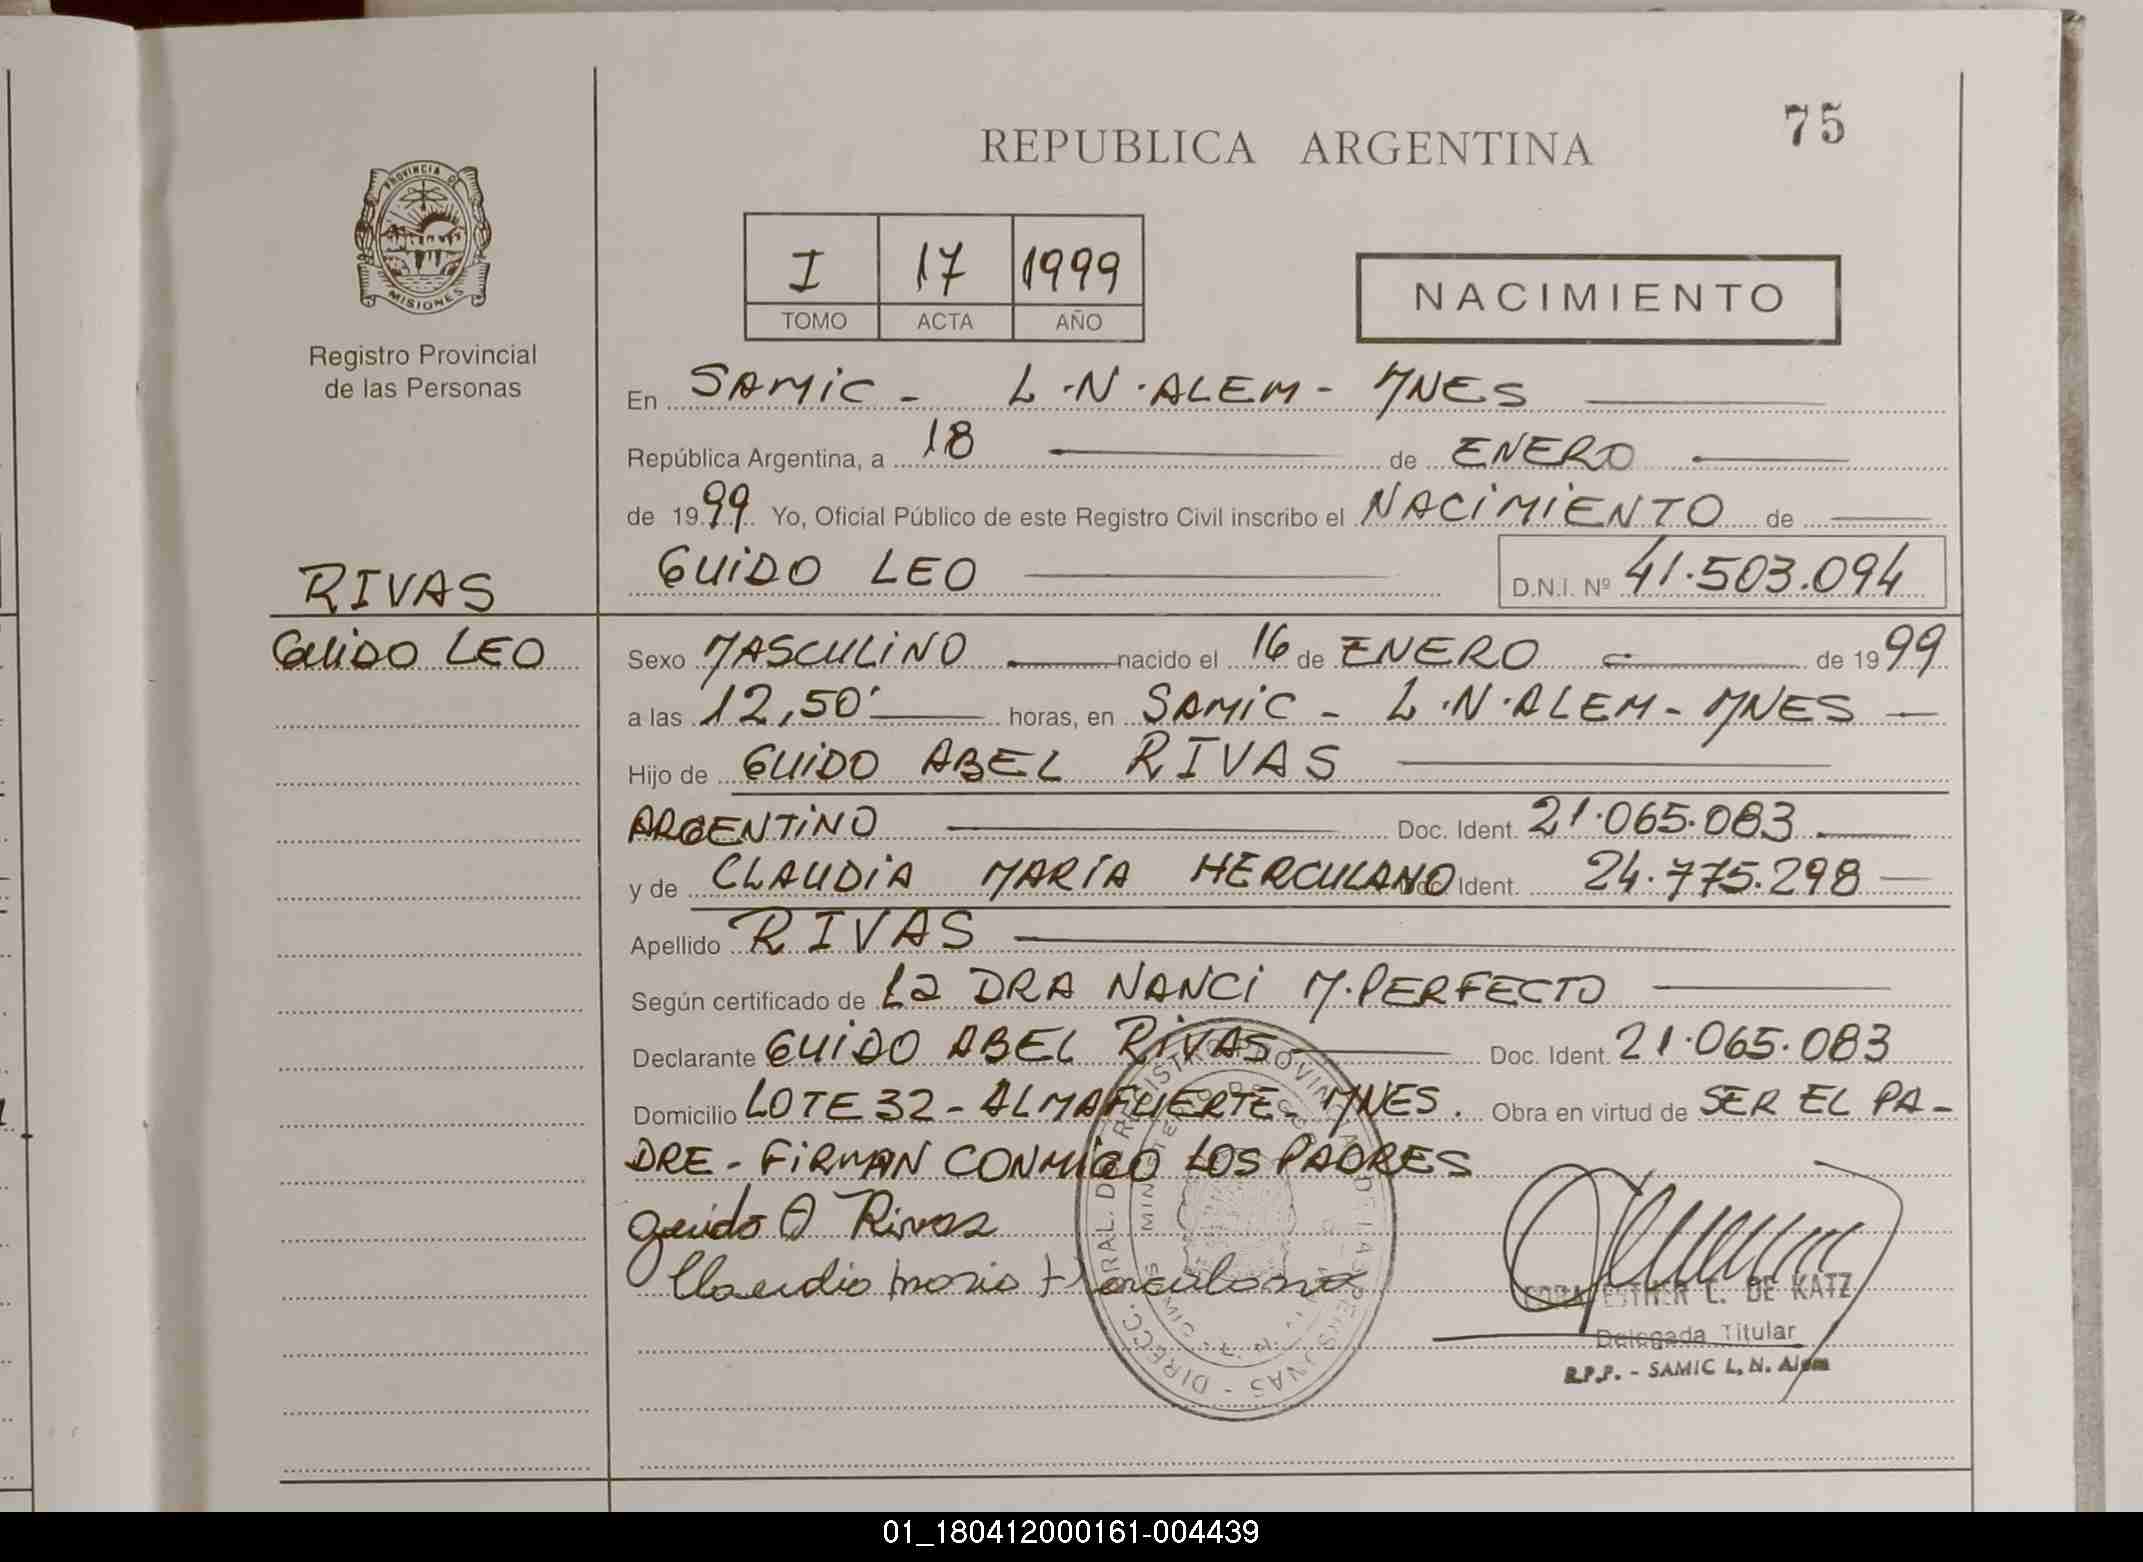 75
REPUBLICA ARGENTINA
PROVINCIA DE
MISIONES
Registro Provincial
de las Personas
I 17 1999
TOMO ACTA AÑO
NACIMIENTO
En SAMIC - L.N.ALEM - MNES
República Argentina, a 18 de ENERO
de 1999 Yo, Oficial Público de este Registro Civil inscribo el NACIMIENTO de
GUIDO LEO D.N.I. Nº 41.503.094
RIVAS
GUIDO LEO
Sexo MASCULINO nacido el 16 de ENERO de 1999
a las 12,50' horas, en SAMIC - L.N.ALEM - MNES
Hijo de GUIDO ABEL RIVAS
ARGENTINO Doc. Ident. 21.065.083
y de CLAUDIA MARÍA HERCULANO Ident. 24.775.298
Apellido RIVAS
Según certificado de La DRA NANCI M. PERFECTO
Declarante GUIDO ABEL RIVAS Doc. Ident. 21.065.083
Domicilio LOTE 32 - ALMAFUERTE - MNES. Obra en virtud de SER EL PA-
DRE - FIRMAN CONMIGO LOS PADRES
Guido A Rivas
Claudia Maria Herculano
ESTHER C. DE KATZ
Delegada Titular
R.P.P. - SAMIC L. N. Alem
01_180412000161-004439